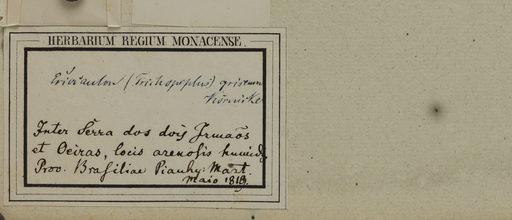 HERBARIUM REGIUM MONACENSE.
Eriocaulon (Trichopeplus) griseum
Körnicke
Inter Serra dos dois Irmaõs
et Oeiras, locis arenosis humid.
Prov. Brasiliae Piauhy. Mart.
Maio 1819.